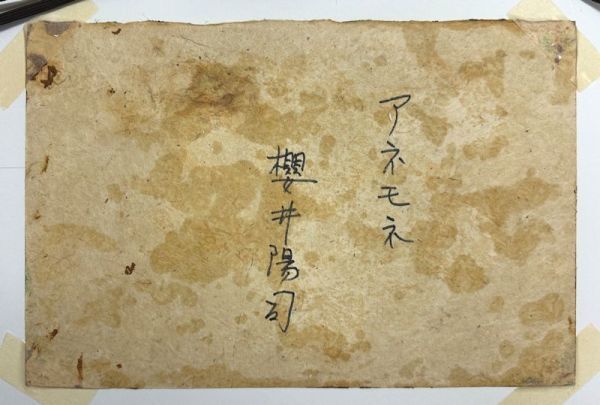 アネモネ
櫻井陽司